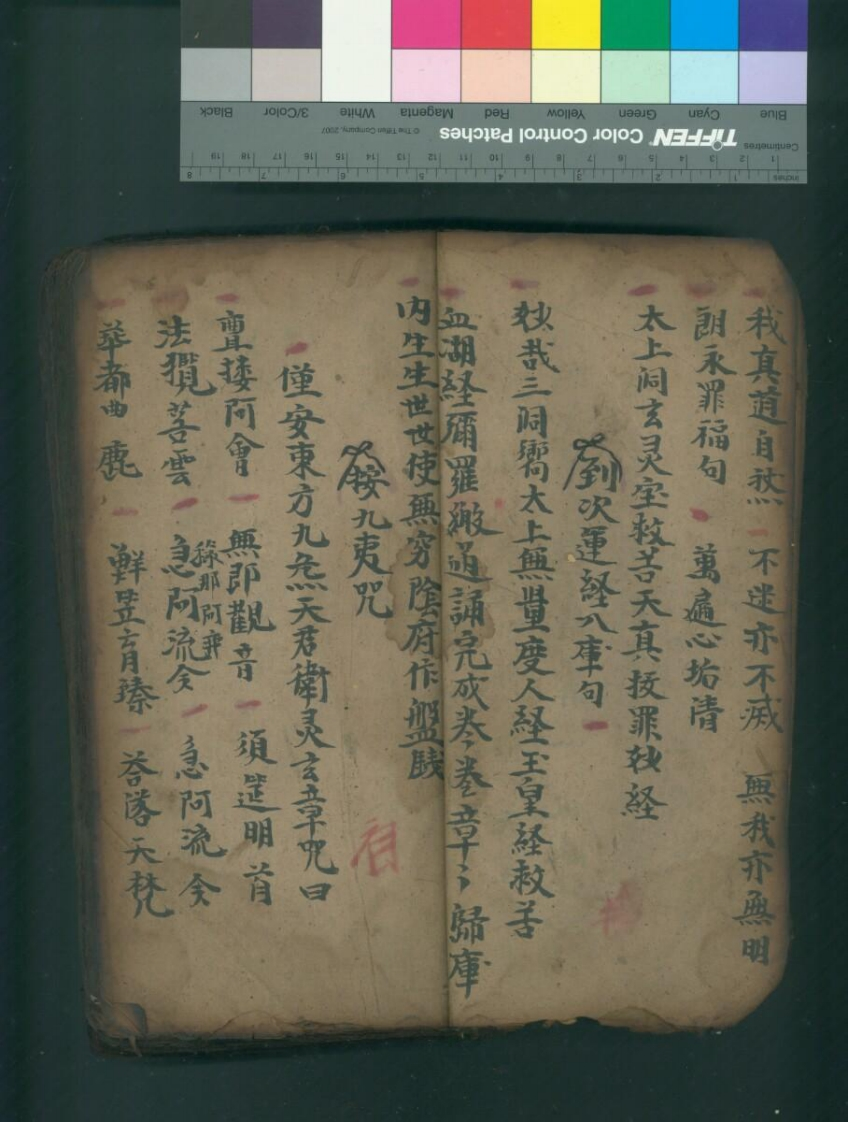 Blue Cyan Green Yellow Red Magenta White 3/Color Black
TIFFEN Color Control Patches © The Tiffen Company, 2007
Centimetres
1 2 3 4 5 6 7 8 9 10 11 12 13 14 15 16 17 18 19
Inches
1 2 3 4 5 6 7 8
我真道自 不迷亦不滅 無我亦無明
朗永罪福句 萬遍心垢清
太上洞玄灵宝救苦天真拔罪 経
到次運経八庫句
哉三洞 太上無量度人経玉皇経救苦
血湖経彌羅 通誦完成卷々卷章々歸庫
内生生世世使無穷陰府作盤
按九夷咒
僅安東方九炁天君衛灵玄章咒曰
亶接阿會 無即觀音 須 明首
那阿
法攬菩雲 急阿流今 急阿流今
華都曲 鹿 鮮 育臻 荅落天梵